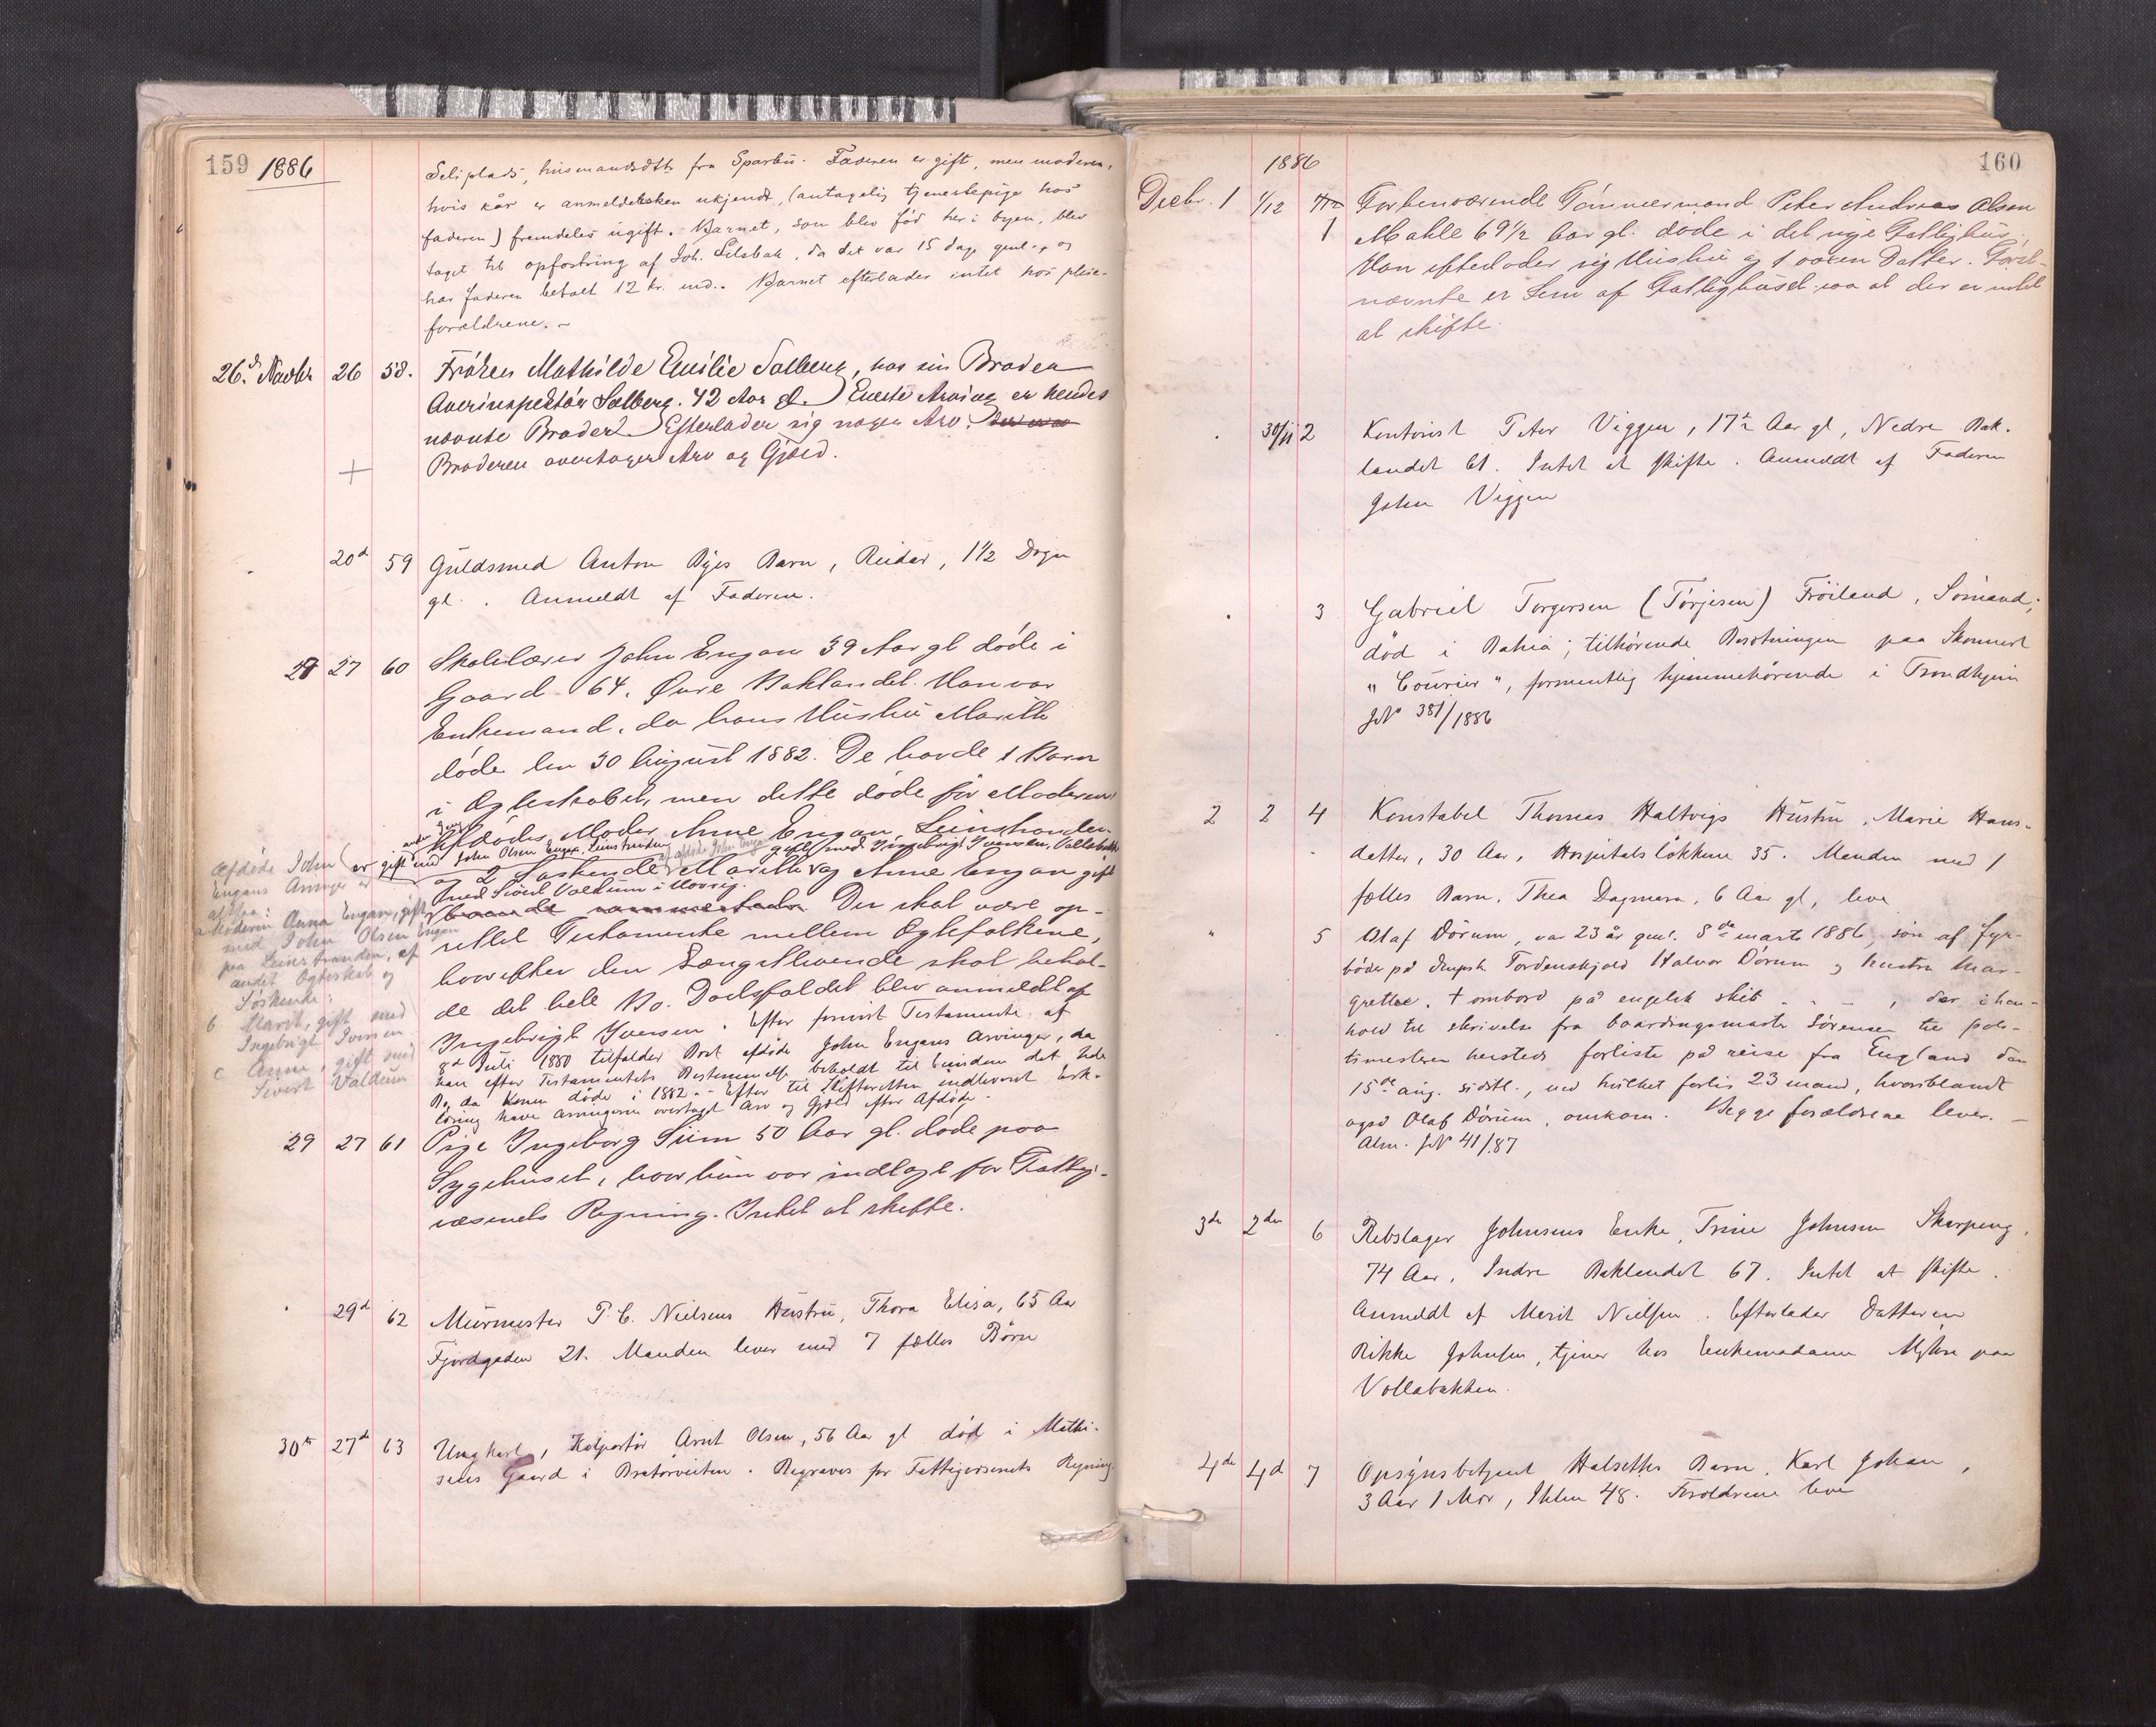 159 1886
Seliplads, husmandsdtr. fra Sparbu. Faderen er gift, men moderen,
hvis kår er anmelderesken ukjendt, (antagelig tjenestepige hos
faderen) fremdeles ugift. Barnet, som blev fød her i byen, blev
taget til opfostring af Joh. Lilabak, da det var 15 dage geml., og
har faderen betalt 12 kr. md.. Barnet efterlader intet hos pleie-
forældrene. -
26.d Novbr 26 58. Frøken Mathilde Emilie Salberg, hos sin Broder
Overinspektør Salberg. 42 Aar gl. Eneste Arving er hendes
nævnte Broder. Efterlader sig nogen Arv.
Broderen overtager Arv og Gjæld.
20d 59 Guldsmed Anton Byes Barn, Reidar, 1 1/2 Døgn
gl. . Anmeldt af Faderen.
27 27 60 Skolelærer John Engan 39 Aar gl døde i
Gaard 64. Øvre Baklandet. Han var
Enkemand, da hans Hustru Marith
døde den 30 August 1882. De havde 1 Barn
i Ægteskabet, men dette døde før Moderen.
Afdødes Moder Anne Engan, Leinstranden
er gift med John Olsen Engan, Leinstranden
af afdøde John Engan gift med Ingebrigt Iversen, Vollabakken
og 2 Søskende Marith og Anne Engan gift
med Sivert Valdum i Hovsig.
Der skal være op-
rettet Testamente mellem Ægtefolkene,
hvorefter den Længstlevende skal behol-
de det hele Bo. Dødsfaldet blev anmeldt af
Ingebrigt Iversen. Efter forevist Testamente af
8d Juli 1880 tilfalder Boet afdøde John Engans Arvinger, da
han efter Testamentets Bestemmelse beholdt til Eiendom det hele
Bo, da Konen døde i 1882. - Efter til Skifteretten indleveret Erk-
læring have Arvingerne overtaget Arv og Gjæld efter Afdøde.
Afdøde John
Engans Arvinger er
altsaa:
a Moderen Anna Engan, gift
med John Olsen Engan
paa Leinstranden, af
andet Ægteskab og
Søskende:
b Marit, gift med
Ingebrigt Iversen
c Anne, gift med
Sivert Valdum
29 27 61 Pige Ingeborg Siem 50 Aar gl. døde paa
Sygehuset, hvor hun var indlagt for Fattig-
væsenets Regning. Intet at skifte.
29d 62 Murmester P. C. Nielsens Hustru, Thora Elisa, 65 Aar
Fjordgaden 21. Manden lever med 7 fælles Børn
30te 27d 63 Ungkarl, Kolportør Arnt Olsen, 56 Aar gl død i Mathi-
sens Gaard i Bratørveiten. Begraves for Fattigvæsenets Regning.
1886 160
Decbr. 1 1/12 1 Forhenværende Tømmermand Peter Andreas Olsen
Mahle 69 1/2 Aar gl. døde i det nye Fattighus.
Han efterlader sig Hustru og 1 voxen Datter. Først-
nævnte er Lem af Fattighuset saa at der er intet
at skifte.
30/11 2 Kontorist Peter Viggen, 17 1/2 Aar gl, Nedre Bak-
landet 61. Intet at skifte. Anmeldt af Faderen
John Viggen
3 Gabriel Torgersen (Törjesen) Fröiland, Sömand;
död i Bahia; tilhörende Besætningen paa Skonnert
"Courier", formentlig hjemmehörende i Trondhjem
JN° 381/1886
2 2 4 Konstabel Thomas Haltvigs Hustru, Marie Hans-
datter, 30 Aar, Hospitalslökkene 35. Manden med 1
fælles Barn, Thea Dagmara, 6 Aar gl, leve
" 5 Olaf Dörum, var 23 år geml. 8de marts 1886, søn af fyr-
bøder på dmpsk. Tordenskjold Halvor Dörum og hustru Mar-
grethe. † ombord på engelsk skib - - -, der i hen-
hold til skrivelse fra boardingmaster Sörensen til poli-
timesteren hersteds forliste på reise fra England den
15de aug. sidstl., ved hvilket forlis 23 mand, hvoriblandt
også Olaf Dörum, omkom. Begge forældrene lever. -
Alm. JN° 41/87
3die 2den 6 Rebslager Johnsens Enke, Trine Johnsen Skarpeng,
74 Aar, Indre Baklandet 67. Intet at skifte.
Anmeldt af Merit Nielsen. Efterlader Datteren
Rikke Johnsen, tjener hos Enkemadame Myhre paa
Vollabakken.
4de 4d 7 Opsynsbetjent Halseths Barn, Karl Johan,
3 Aar 1 Mdr, Ihlen 48. Forældrene leve